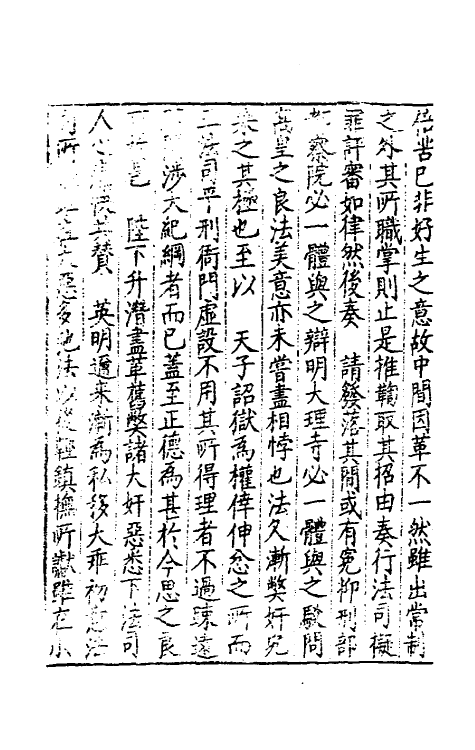 苦已非好生之意故中間因革不一然雖出常制
之外其所職掌則止是推鞫取其招由奏行法司擬
罪評審如律然後奏　請發落其間或有冤抑刑部
都察院必一體與之辯明大理寺必一體與之駁問
之良法美意亦未嘗盡相悖也法久漸弊奸宄
乘之其極也至以　天子詔獄為權倖伸忿之所而
三法司平刑衙門虛設不用其所得理者不過踈遠
涉大紀綱者而已蓋至正德為甚於今思之良
陛下升潛盡革舊弊諸大奸惡悉下法司
人心共贊　英明邇來漸為私移大乖初意
所惡多也法鎮撫所雖在小